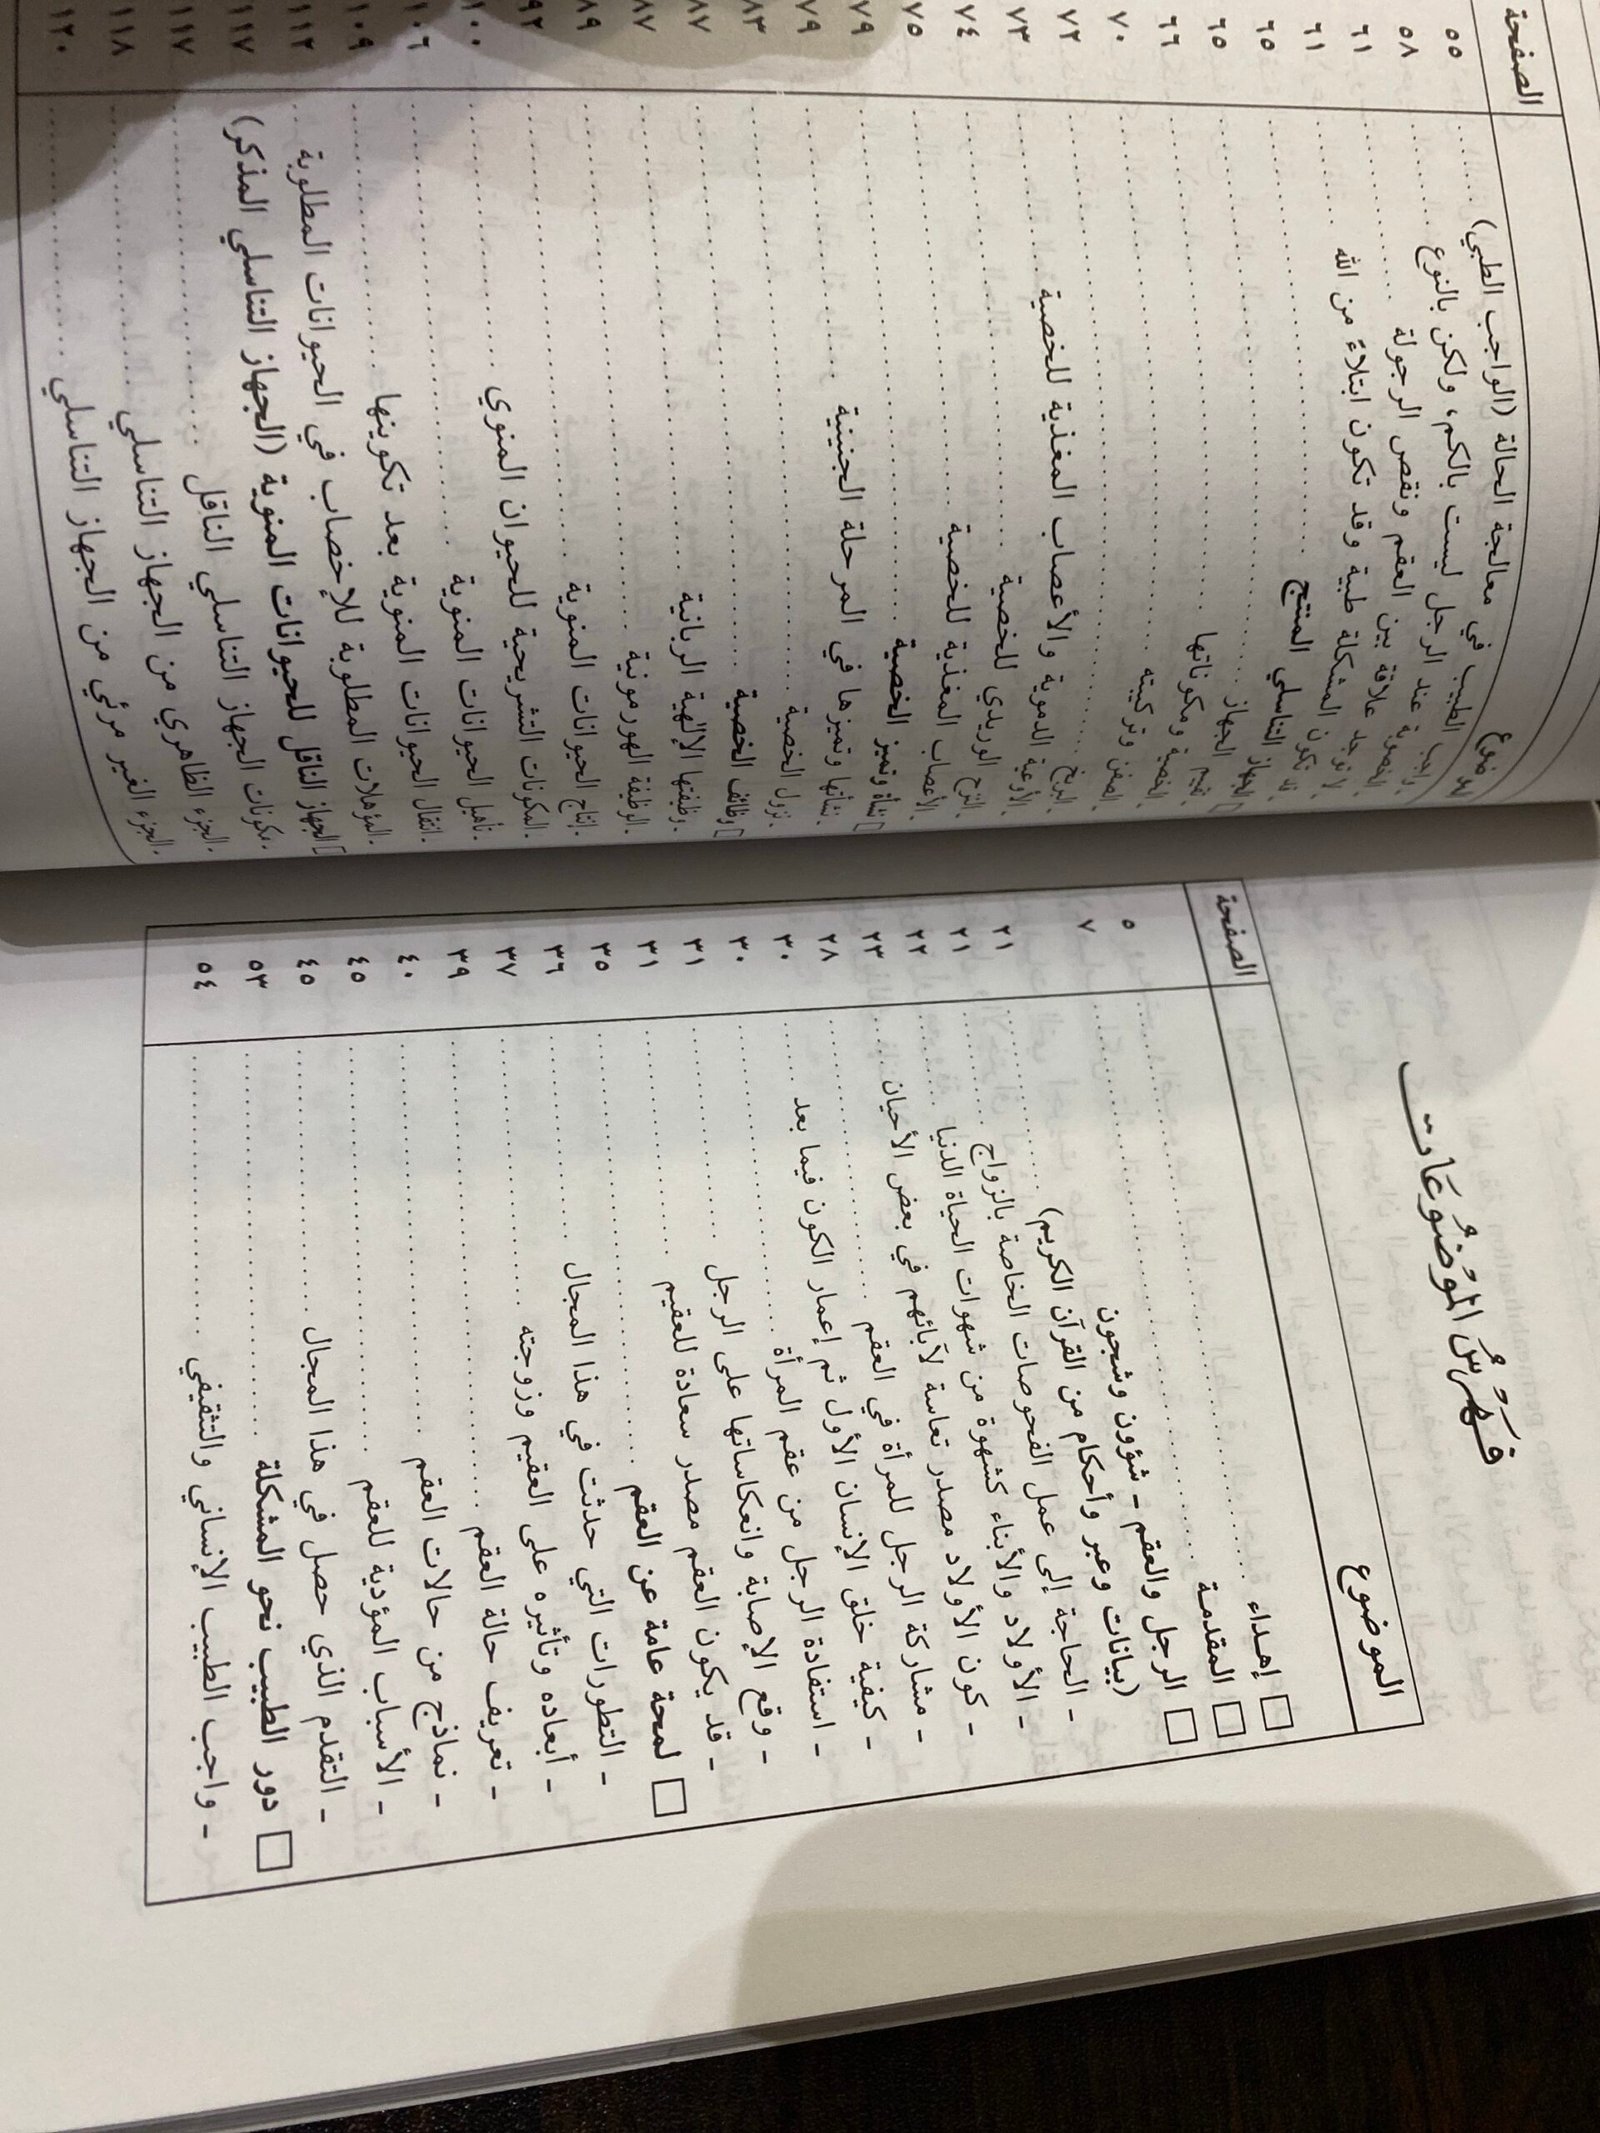 فهرس الموضوعات
الموضوع الصفحة
□ إهداء ٥
□ المقدمة ٧
□ الرجل والعقم - شؤون وشجون
(بيانات وعبر وأحكام من القرآن الكريم) ٢١
- الحاجة إلى عمل الفحوصات الخاصة بالزواج ٢١
- الأولاد والأبناء كشهوة من شهوات الحياة الدنيا ٢٢
- كون الأولاد مصدر تعاسة لآبائهم في بعض الأحيان ٢٣
- مشاركة الرجل للمرأة في العقم ٢٨
- كيفية خلق الإنسان الأول ثم إعمار الكون فيما بعد ٣٠
- استفادة الرجل من عقم المرأة ٣٠
- وقع الإصابة وانعكاساتها على الرجل ٣١
- قد يكون العقم مصدر سعادة للعقيم ٣١
□ لمحة عامة عن العقم ٣٥
- التطورات التي حدثت في هذا المجال ٣٦
- أبعاده وتأثيره على العقيم وزوجته ٣٧
- تعريف حالة العقم ٣٩
- نماذج من حالات العقم ٤٠
- الأسباب المؤدية للعقم ٤٥
- التقدم الذي حصل في هذا المجال ٤٥
□ دور الطبيب نحو المشكلة ٥٣
- واجب الطبيب الإنساني والتثقيفي ٥٤
الموضوع الصفحة
- واجب الطبيب في معالجة الحالة (الواجب الطبي) ٥٥
- الخصوبة عند الرجل ليست بالكم، ولكن بالنوع ٥٨
- لا توجد علاقة بين العقم ونقص الرجولة ٦١
- قد تكون المشكلة طبية وقد تكون ابتلاءً من الله ٦١
□ الجهاز التناسلي المنتج ٦٥
- تقييم الجهاز ٦٥
- الخصية ومكوناتها ٦٦
- الصفن وتركيبته ٧٠
- البربخ ٧٢
- الأوعية الدموية والأعصاب المغذية للخصية ٧٣
- النزح الوريدي للخصية ٧٤
- الأعصاب المغذية للخصية ٧٥
□ نشأة وتميز الخصية ٧٩
- نشأتها وتميزها في المرحلة الجنينية ٧٩
- نزول الخصية ٨٣
□ وظائف الخصية ٨٧
- وظيفتها الإلهية الربانية ٨٧
- الوظيفة الهورمونية ٨٩
- إنتاج الحيوانات المنوية ٩٢
- المكونات التشريحية للحيوان المنوي ١٠٠
- تأهيل الحيوانات المنوية ١٠٦
- انتقال الحيوانات المنوية بعد تكوينها ١٠٩
- المؤهلات المطلوبة للإخصاب في الحيوانات المطلوبة ١١٢
□ الجهاز الناقل للحيوانات المنوية (الجهاز التناسلي المذكر) ١١٧
- مكونات الجهاز التناسلي الناقل ١١٧
- الجزء الظاهري من الجهاز التناسلي ١١٨
- الجزء الغير مرئي من الجهاز التناسلي ١٢٠